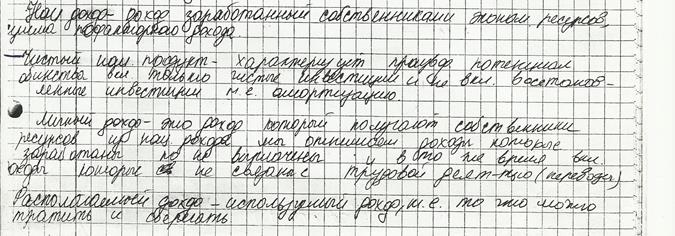 Нац доход - доход заработанный собственниками эконом ресурсов,
сумма пофакторного дохода.
Чистый нац. продукт - характеризует произвд потенциал
общества вкл только чистые инвестиции и не вкл. восстанов-
ленные инвестиции т.е. амортизацию.
Личный доход - это доход который получают собственники
ресурсов из нац дохода мы отнимаем доходы которые
заработаны но не выплачены и в то же время вкл
доходы которые не связаны с трудовой деят-тью (переводы)
Располагаемый доход - используемый доход, т.е. то что можно
тратить и сберегать